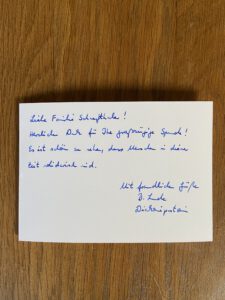 Liebe Familie
Herzlichen Dank für Ihre großzügige Spende!
Es ist schön zu sehen, dass Menschen in dieser
Zeit solidarisch sind.
Mit freundlichen Grüßen